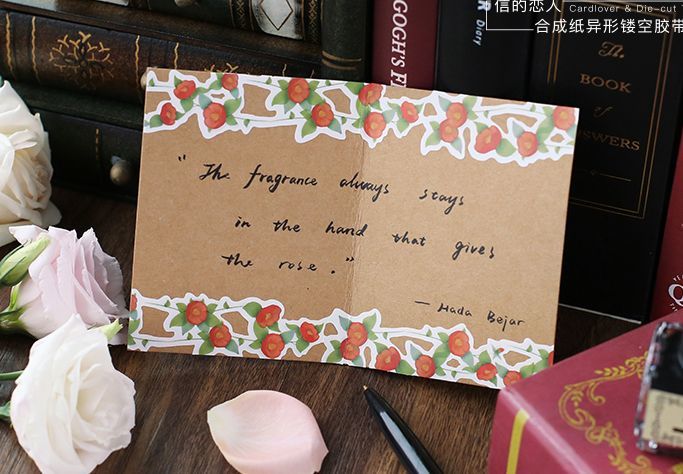 信的恋人 Cardlover & Die-cut
合成纸异形镂空胶带
"The fragrance always stays
in the hand that gives
the rose."
— Hada Bejar
GOGH'S
Diary
The
BOOK
of
ANSWERS